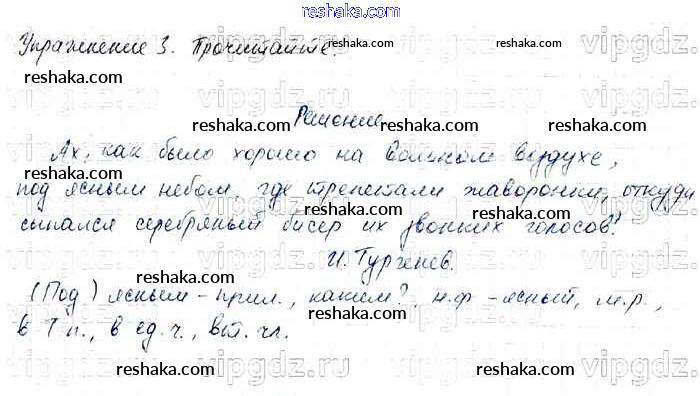 reshaka.com
Упражнение 3. Прочитайте.
reshaka.com reshaka.com reshaka.com
Решение
reshaka.com reshaka.com reshaka.com
Ах, как было хорошо на вольном воздухе,
под ясным небом, где трепетали жаворонки, откуда
сыпался серебряный бисер их звонких голосов!
reshaka.com reshaka.com reshaka.com
И. Тургенев.
(Под) ясным - прил., каким?, н.ф - ясный, м.р.,
в Т п., в ед. ч., вт. чл.
reshaka.com reshaka.com reshaka.com